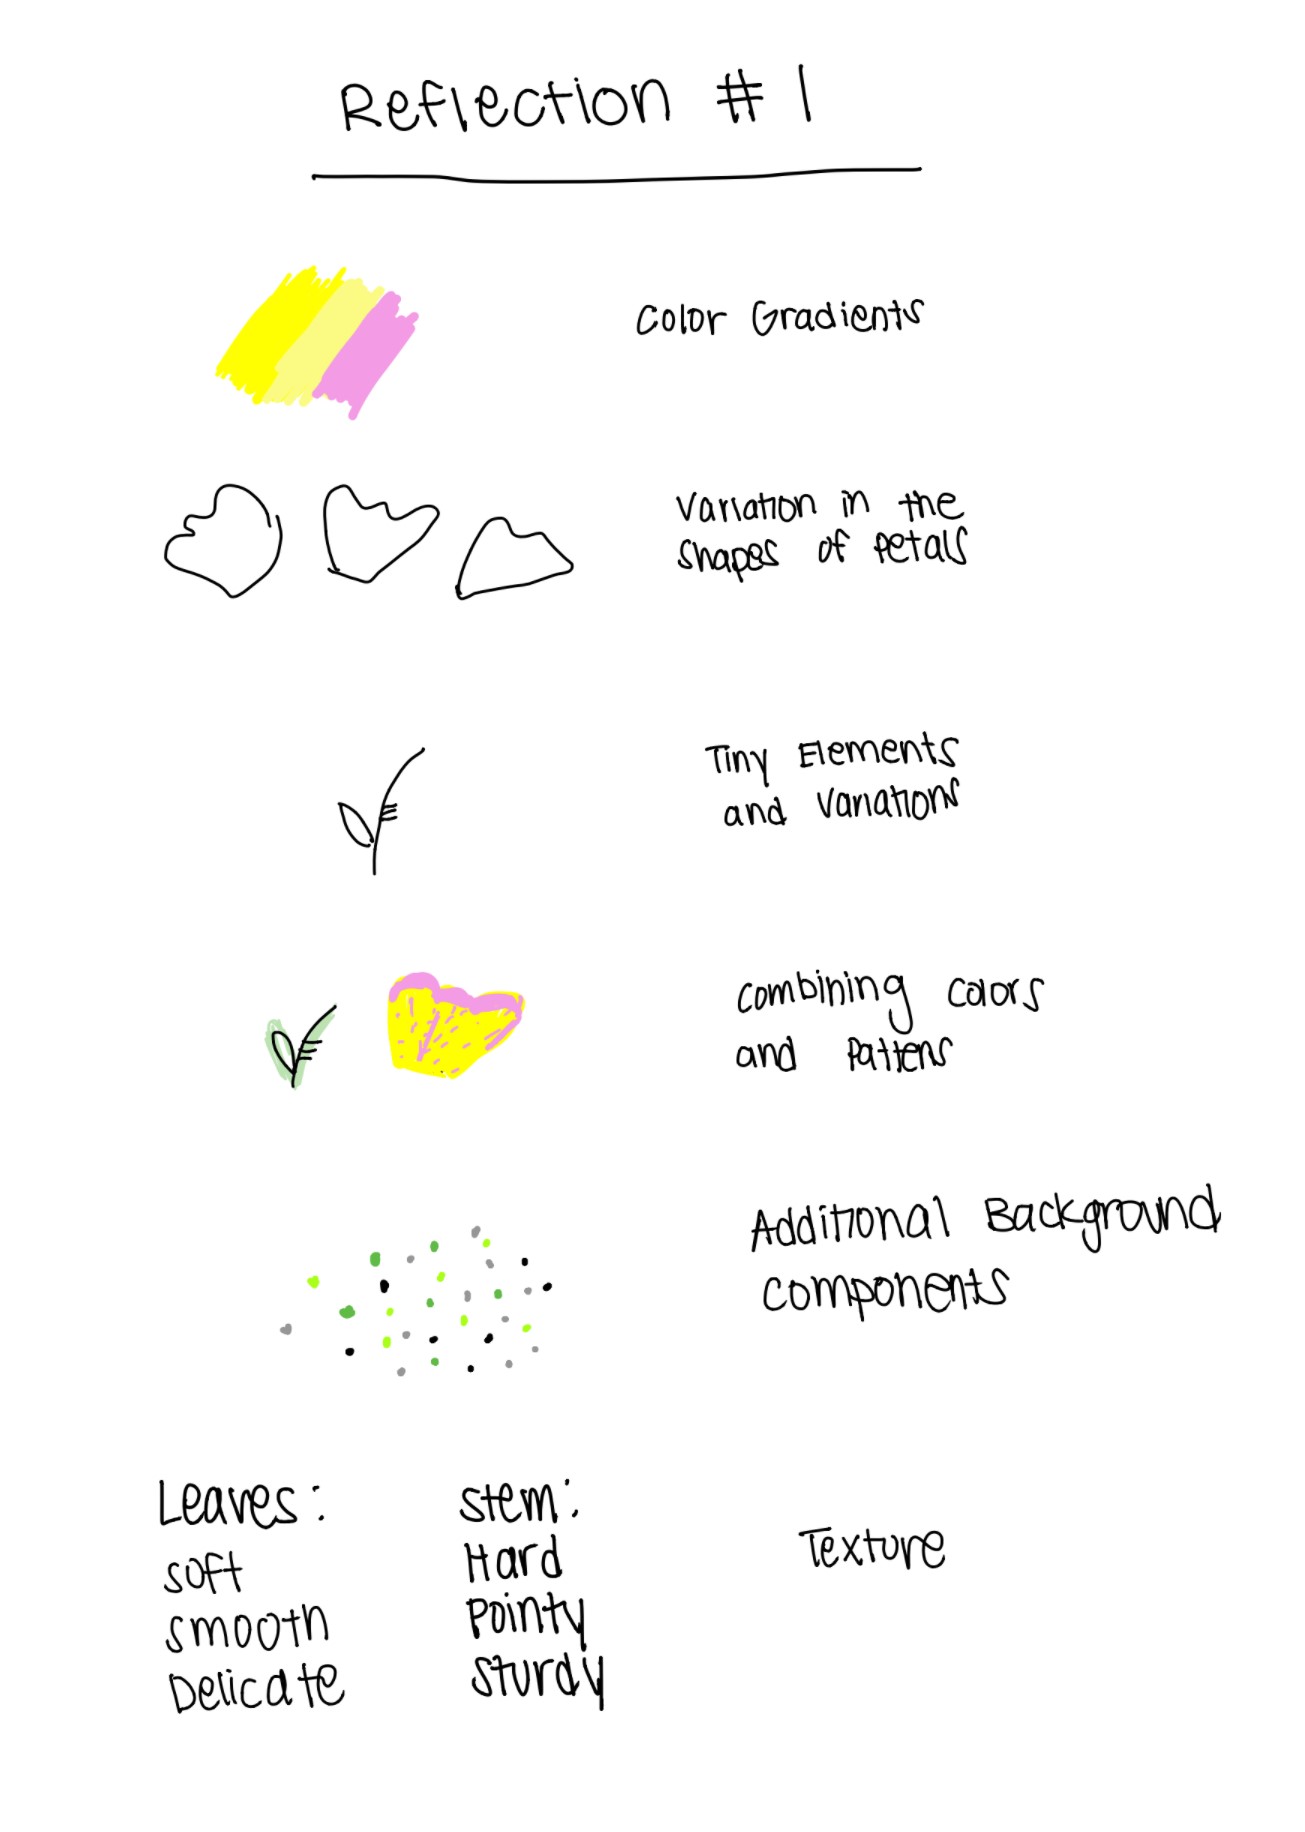 Reflection # 1
Color Gradients
Variation in the
shapes of Petals
Tiny Elements
and Variations
Combining Colors
and Pattens
Additional Background
components
Leaves:
soft
smooth
Delicate
Stem:
Hard
Pointy
Sturdy
Texture